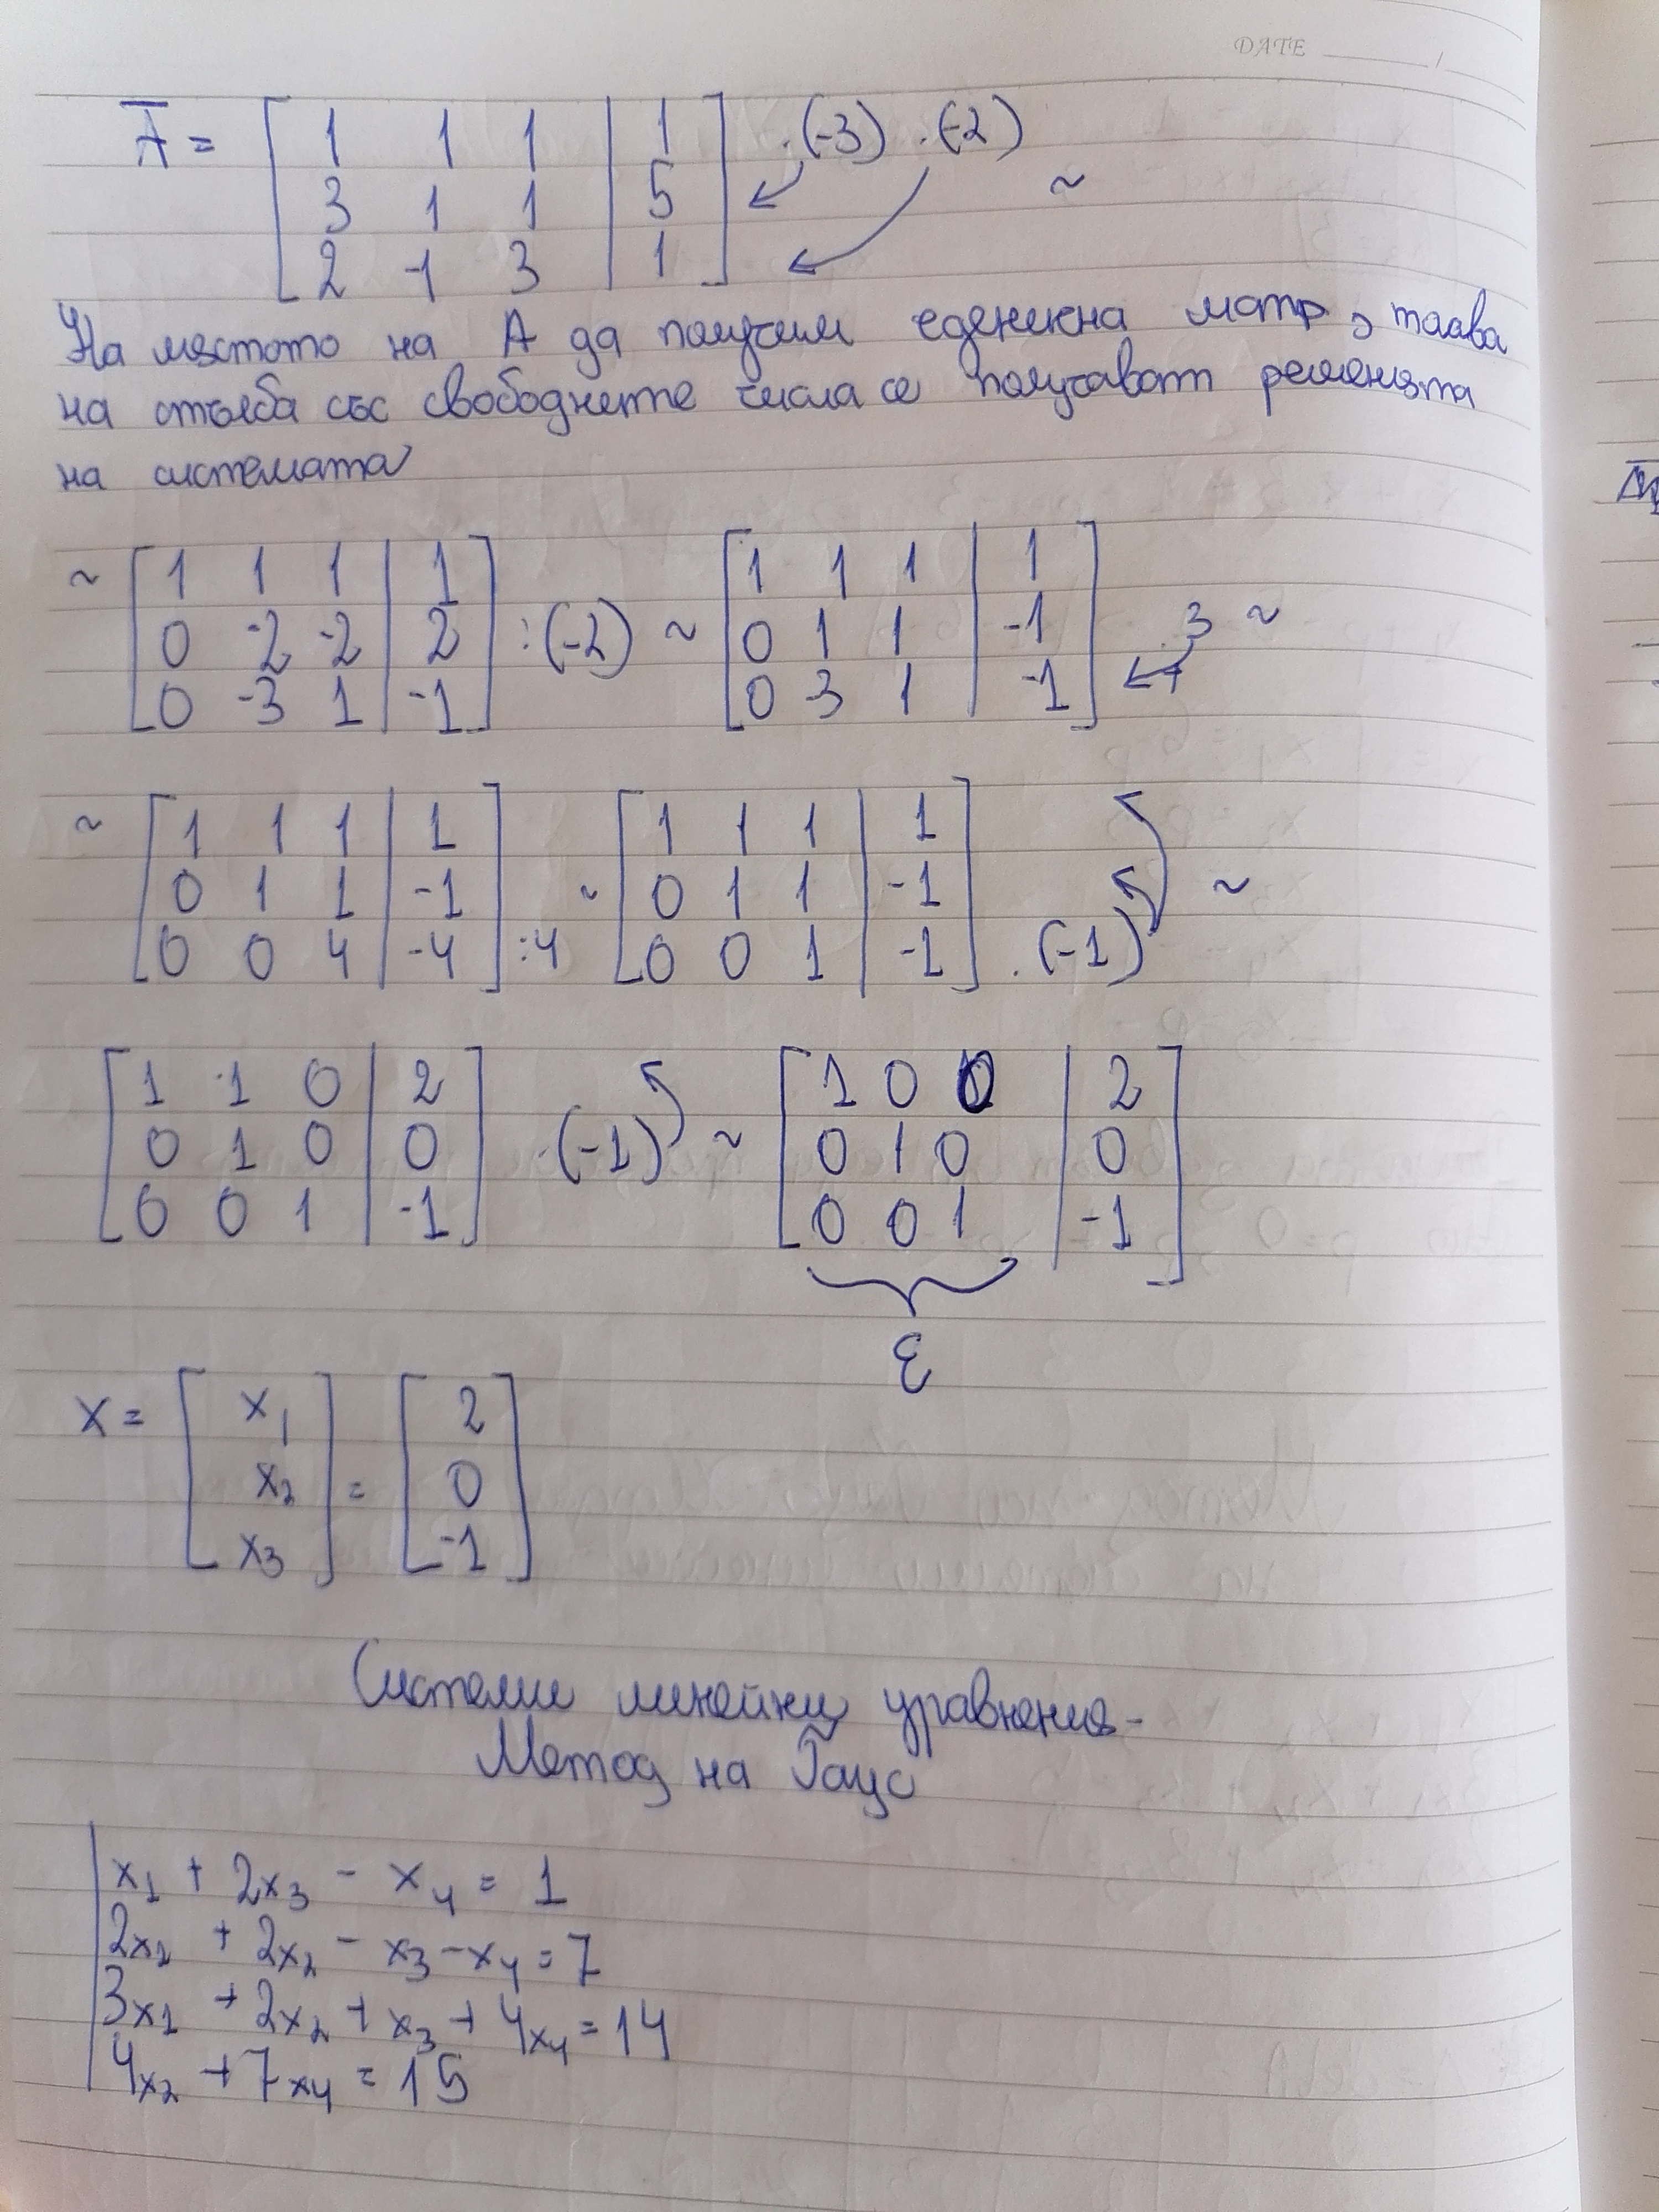 DATE
A̅ = [ 1 1 1 | 1 ] .(-3) .(-2)
[ 3 1 1 | 5 ] ~
[ 2 -1 3 | 1 ]
На мястото на А да получим еденична матр, тогава
на стълба със свободните числа се получават решенията
на системата
~ [ 1 1 1 | 1 ] ~ [ 1 1 1 | 1 ]
[ 0 -2 -2 | 2 ] :(-2) [ 0 1 1 | -1 ] .3 ~
[ 0 -3 1 | -1 ] [ 0 -3 1 | -1 ] +
~ [ 1 1 1 | 1 ] ~ [ 1 1 1 | 1 ] ~
[ 0 1 1 | -1 ] [ 0 1 1 | -1 ]
[ 0 0 4 | -4 ] :4 [ 0 0 1 | -1 ] .(-1)
[ 1 1 0 | 2 ] [ 1 0 0 | 2 ]
[ 0 1 0 | 0 ] .(-1) ~ [ 0 1 0 | 0 ]
[ 0 0 1 | -1 ] [ 0 0 1 | -1 ]
E
X = [ x₁ ] = [ 2 ]
[ x₂ ] [ 0 ]
[ x₃ ] [ -1 ]
Системи линейни уравнения-
Метод на Гаус
x₁ + 2x₃ - x₄ = 1
2x₂ + 2x₂ - x₃ - x₄ = 7
3x₁ + 2x₂ + x₃ + 4x₄ = 14
4x₂ + 7x₄ = 15